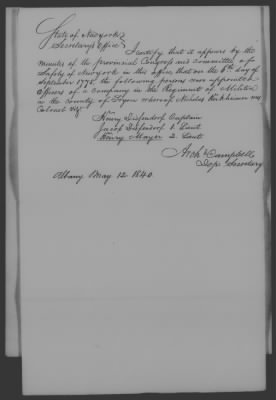 State of New york }
Secretary's Office }
I certify that it appears by the
minutes of the provincial Congress and committee of
Safety of New york in this office that on the 6th day of
September 1775, the following persons were appointed
Officers of a company in the Regiment of Militia
in the County of Tryon whereof Nicholas Herkheimer was
Colonel viz:
Henry Diefendorf Captain
Jacob Diefendorf 1. Lieut
Henry Mayer 2. Lieut
Archd Campbell
Dep. Secretary
Albany May 12. 1840.